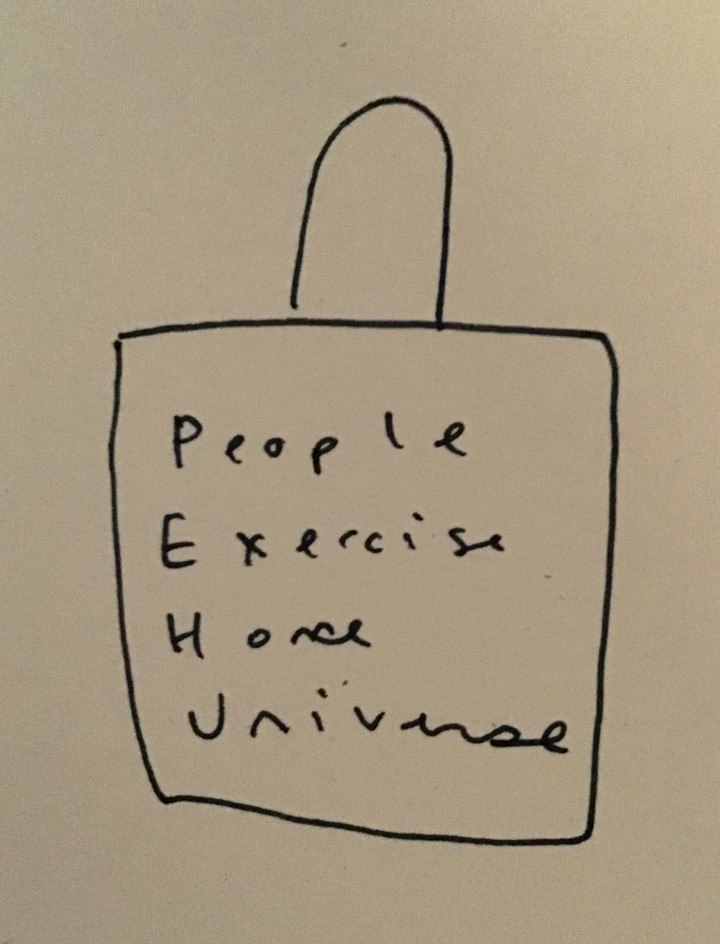 People
Exercise
Home
Universe